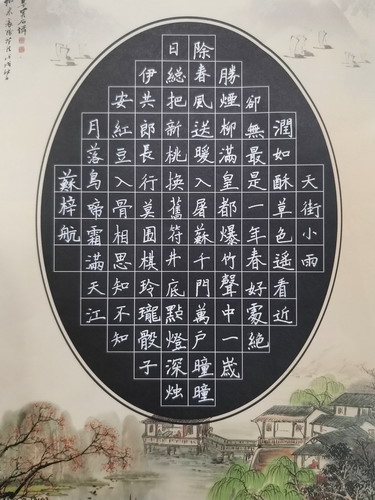 天街小雨
潤如酥草色遙看近
卻無最是一年春好處絕
勝煙柳滿皇都爆竹聲中一歲
除春風送暖入屠蘇千門萬戶曈曈
日總把新桃換舊符井底點燈深烛
伊共郎長行莫圍棋玲瓏骰子
安紅豆入骨相思知不知
月落烏啼霜滿天江
蘇梓航